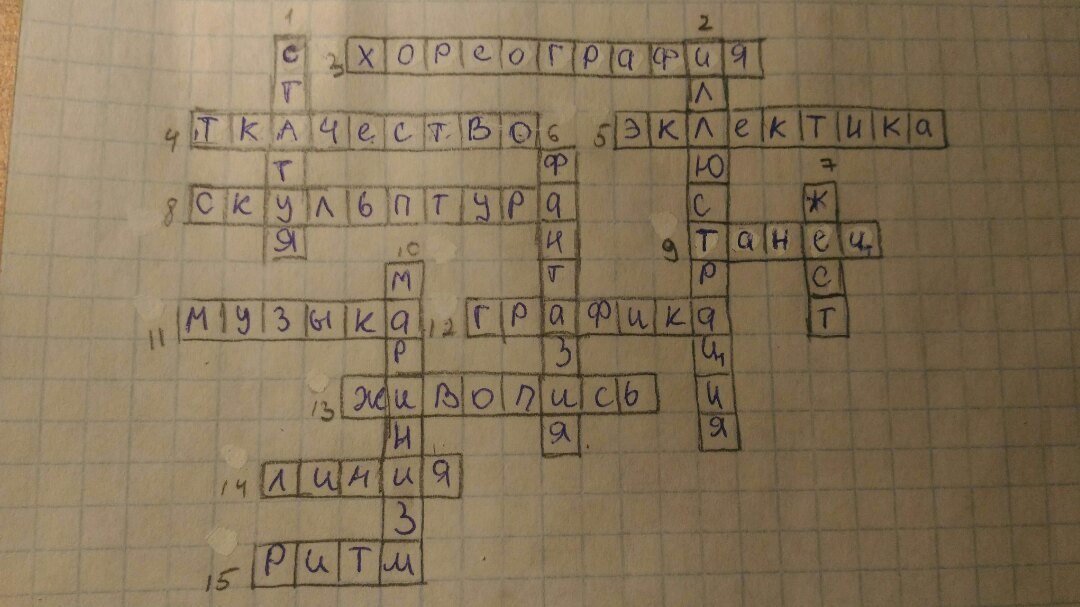 1 СТАТУЯ
2 ИЛЛЮСТРАЦИЯ
3 ХОРЕОГРАФИЯ
4 ТКАЧЕСТВО
5 ЭКЛЕКТИКА
6 ФАНТАЗИЯ
7 ЖЕСТ
8 СКУЛЬПТУРА
9 ТАНЕЦ
10 МАРИНИЗМ
11 МУЗЫКА
12 ГРАФИКА
13 ЖИВОПИСЬ
14 ЛИНИЯ
15 РИТМ